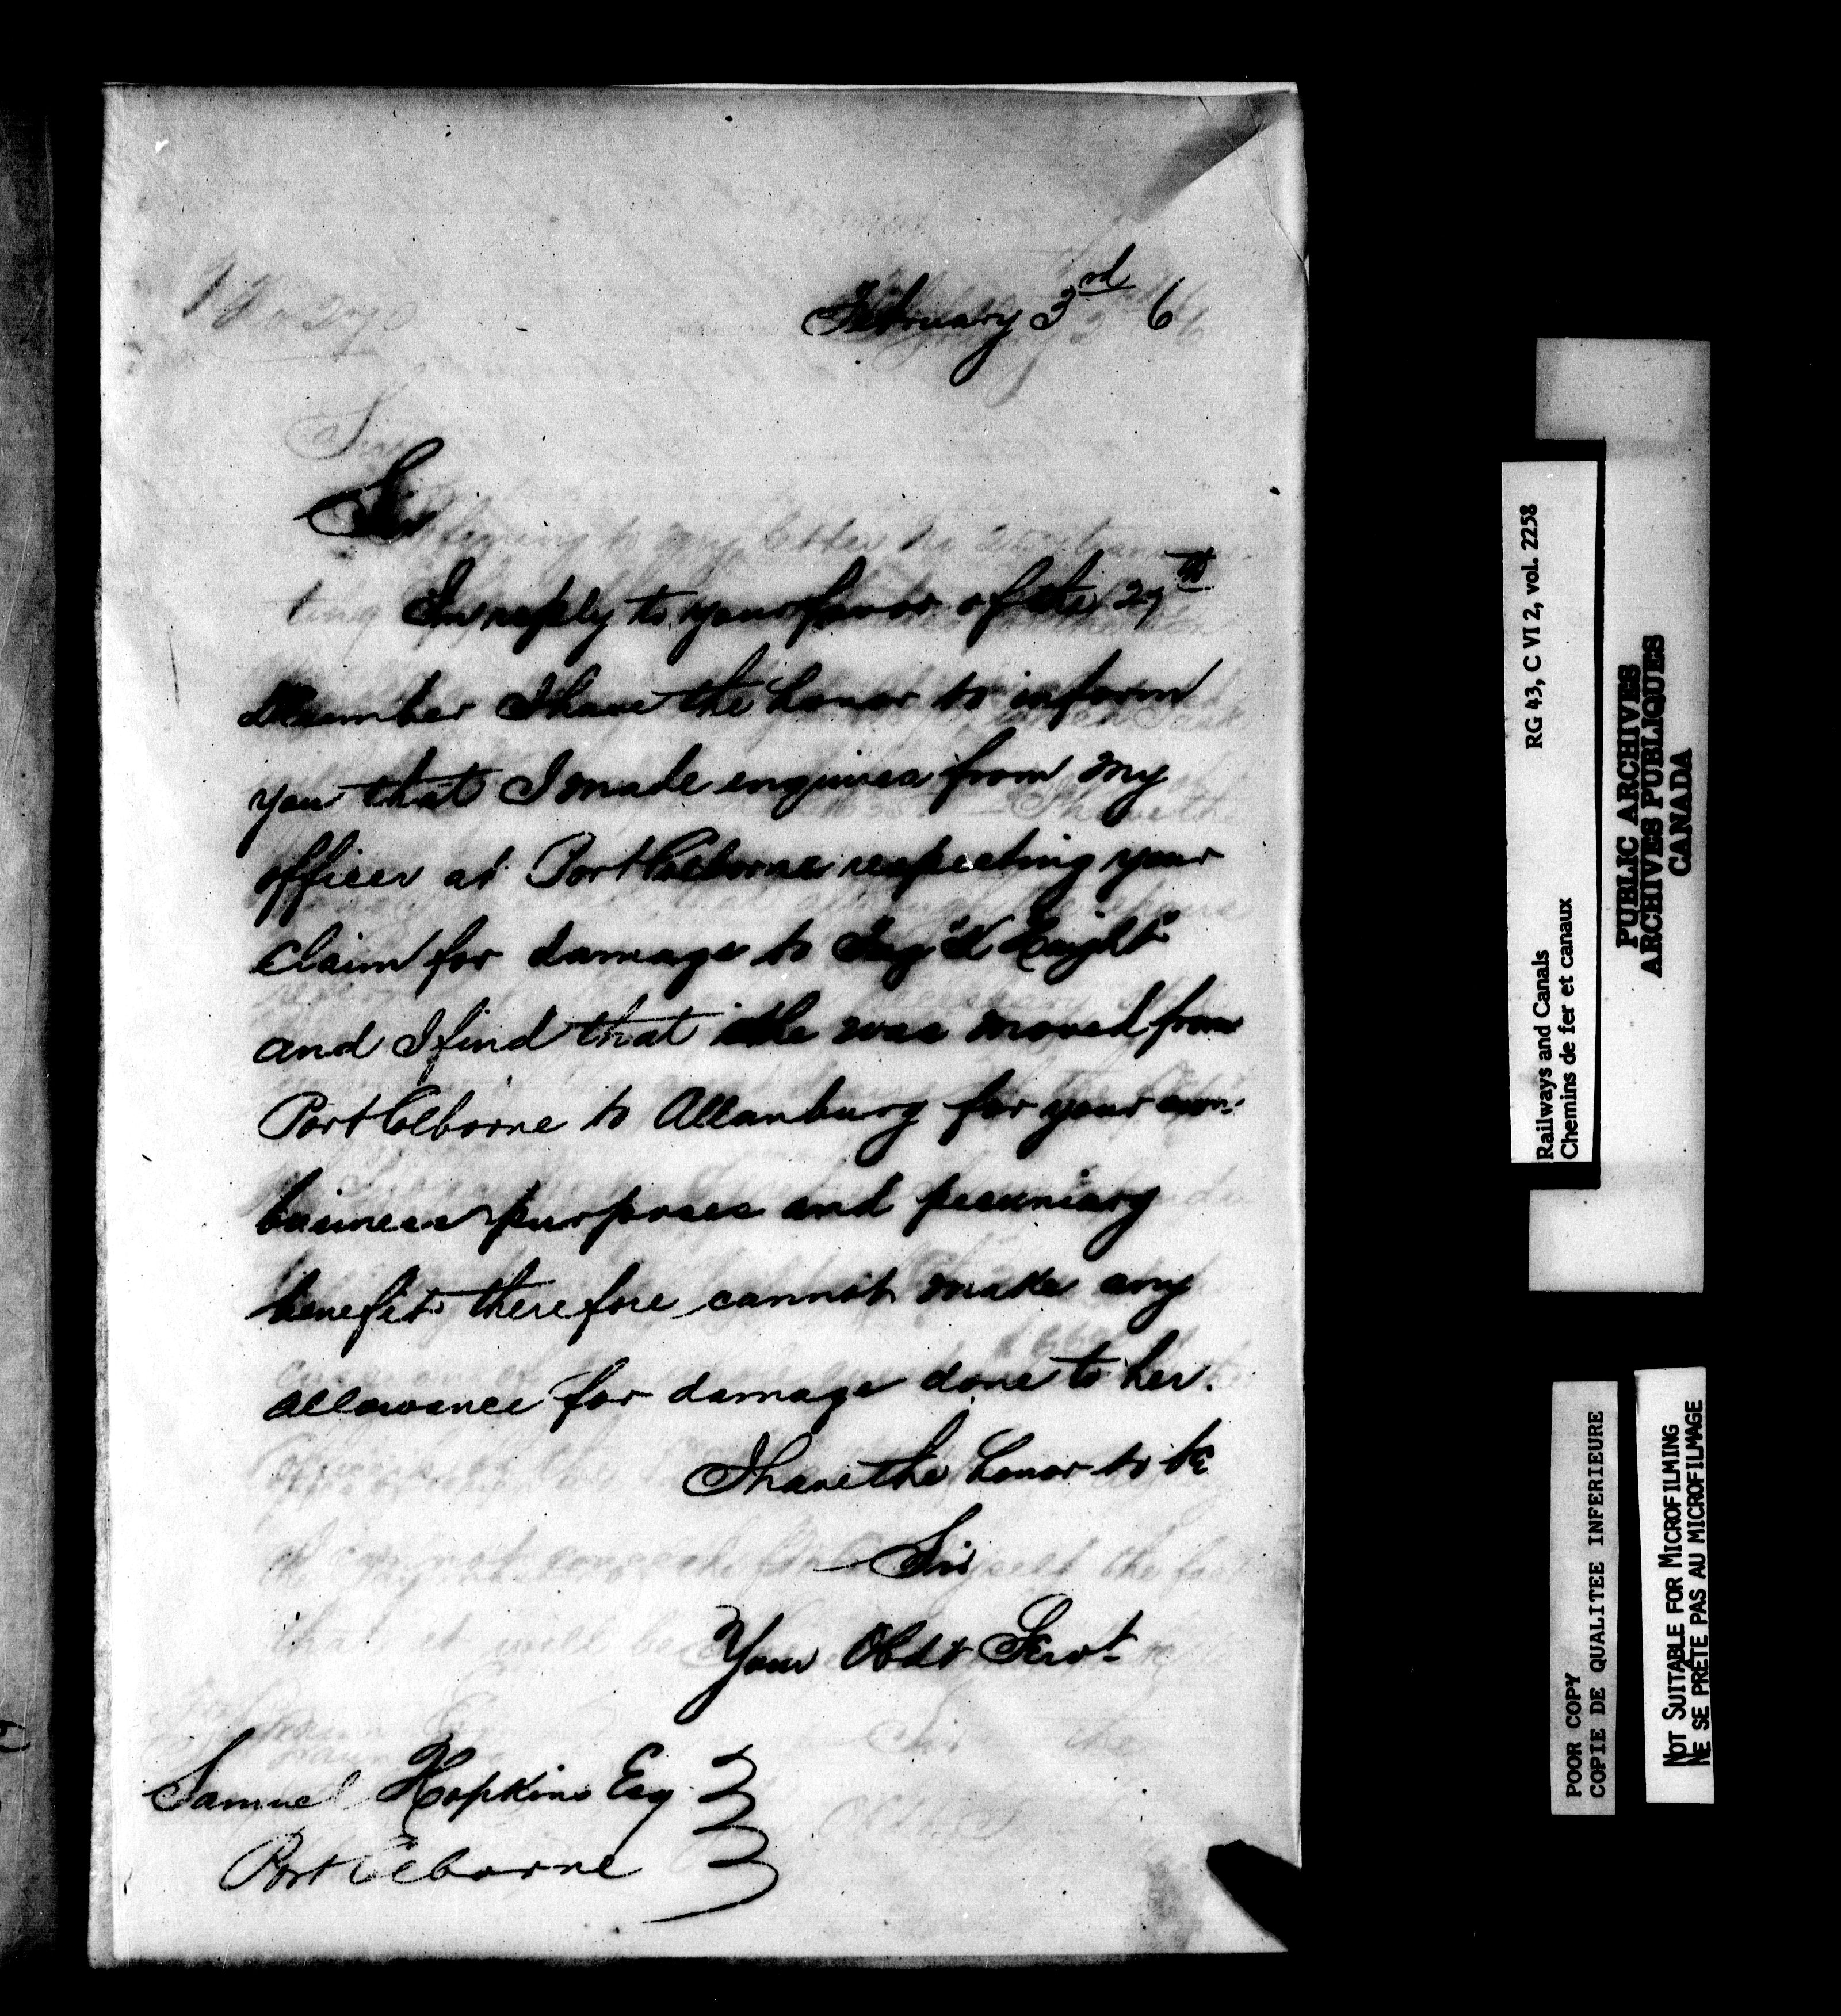 February 3rd 6
Sir
In reply to your favor of the 27th
December I have the honor to inform
you that I made enquires from my
officer at Port Colborne respecting your
claim for damage to Tug "
and I find that she was moved from
Port Colborne to Allanburg for your own
business purposes and pecuniary
benefit therefore cannot make any
allowance for damage done to her.
I have the honor to be
Sir
Your Obdt Servt
Samuel Hopkins Esq
Port Colborne
RG 43, C VI 2, vol. 2258
Railways and Canals
Chemins de fer et canaux
PUBLIC ARCHIVES
ARCHIVES PUBLIQUES
CANADA
POOR COPY
COPIE DE QUALITEE INFERIEURE
NOT SUITABLE FOR MICROFILMING
NE SE PRÊTE PAS AU MICROFILMAGE